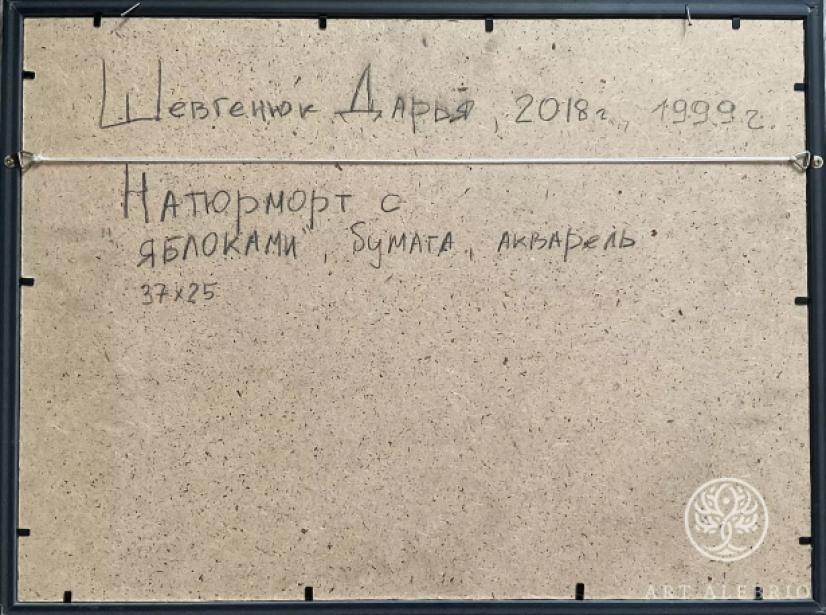 Шевгенюк Дарья, 2018г., 1999г.
Натюрморт с
"яблоками", бумага, акварель
37x25
ART ALEBRIO